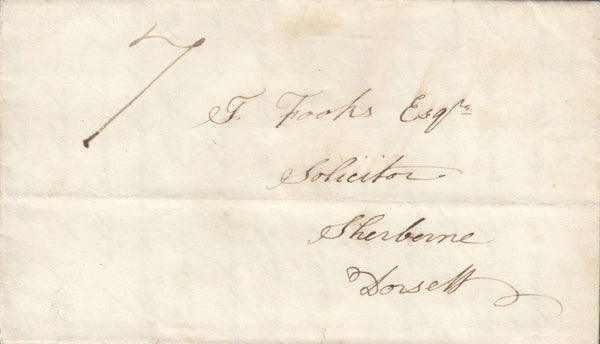 7
T. Fooks Esqre
Solicitor
Sherborne
Dorsett